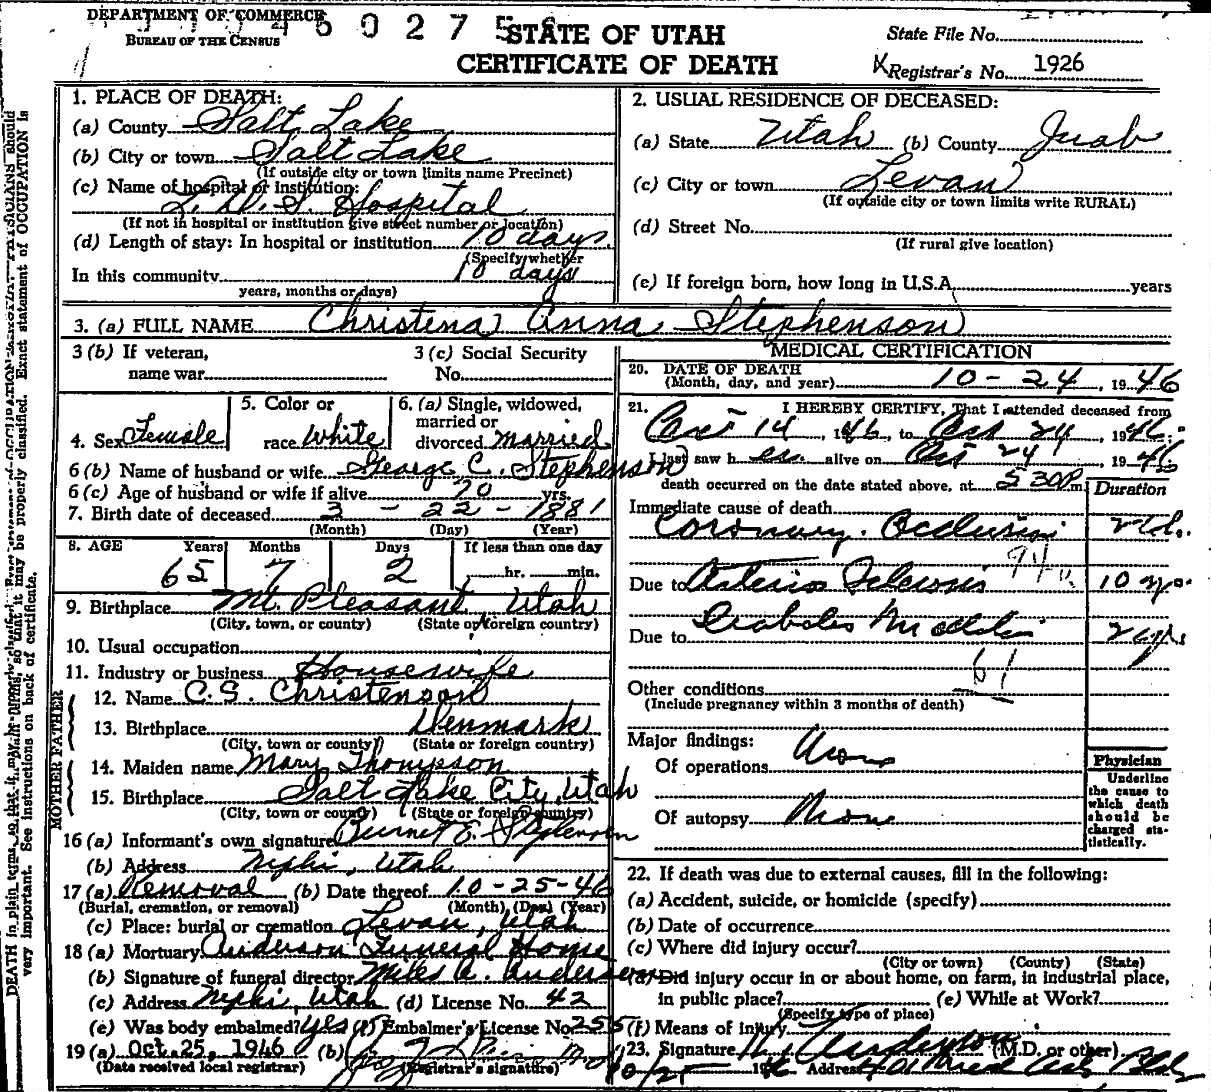 DEPARTMENT OF COMMERCE
BUREAU OF THE CENSUS
4 5 0 2 7 5
STATE OF UTAH
CERTIFICATE OF DEATH
State File No.
Registrar's No. 1926
1. PLACE OF DEATH:
(a) County Salt Lake
(b) City or town Salt Lake
(If outside city or town limits name Precinct)
(c) Name of hospital or institution:
L. D. S. Hospital
(If not in hospital or institution give street number or location)
(d) Length of stay: In hospital or institution 10 days
(Specify whether
In this community 10 days
years, months or days)
2. USUAL RESIDENCE OF DECEASED:
(a) State Utah (b) County Juab
(c) City or town Levan
(If outside city or town limits write RURAL)
(d) Street No.
(If rural give location)
(e) If foreign born, how long in U.S.A. years
3. (a) FULL NAME Christena Anna Stephenson
3 (b) If veteran,
name war
3 (c) Social Security
No.
4. Sex Female
5. Color or
race White
6. (a) Single, widowed,
married or
divorced married
6 (b) Name of husband or wife George C. Stephenson
6 (c) Age of husband or wife if alive 70 yrs.
7. Birth date of deceased 3 - 22 - 1881
(Month) (Day) (Year)
8. AGE Years Months Days If less than one day
65 7 2 hr. min.
9. Birthplace Mt. Pleasant, Utah
(City, town, or county) (State or foreign country)
10. Usual occupation
11. Industry or business Housewife
FATHER
12. Name C. S. Christenson
13. Birthplace Denmark
(City, town or county) (State or foreign country)
MOTHER
14. Maiden name Mary Thompson
15. Birthplace Salt Lake City, Utah
(City, town or county) (State or foreign country)
16 (a) Informant's own signature Burnet E. Stephenson
(b) Address Nephi, Utah
17 (a) Removal (b) Date thereof 10-25-46
(Burial, cremation, or removal) (Month) (Day) (Year)
(c) Place: burial or cremation Levan, Utah
18 (a) Mortuary Anderson Funeral Home
(b) Signature of funeral director Miles A. Anderson
(c) Address Nephi, Utah (d) License No. 42
(e) Was body embalmed? Yes (f) Embalmer's License No. 255
19 (a) Oct. 25, 1946 (b)
(Date received local registrar) (Registrar's signature)
MEDICAL CERTIFICATION
20. DATE OF DEATH
(Month, day, and year) 10-24, 1946
21. I HEREBY CERTIFY, That I attended deceased from
Oct 14, 1946, to Oct 24, 1946;
I last saw h er alive on Oct 24, 1946
death occurred on the date stated above, at 5 30 P m.
Duration
Immediate cause of death
Coronary Occlusion
94a
Due to Arterio Sclerosis 10 yrs.
Due to Diabetes Mellitus 2 yrs
61
Other conditions
(Include pregnancy within 3 months of death)
Major findings:
Of operations None
Of autopsy None
Physician
Underline
the cause to
which death
should be
charged sta-
tistically.
22. If death was due to external causes, fill in the following:
(a) Accident, suicide, or homicide (specify)
(b) Date of occurrence
(c) Where did injury occur?
(City or town) (County) (State)
(d) Did injury occur in or about home, on farm, in industrial place,
in public place? (e) While at Work?
(Specify type of place)
(f) Means of injury
23. Signature Anderson (M.D. or other)
10/25 1946 Address
DEATH in plain terms, so that it may be properly classified. Exact statement of OCCUPATION is
very important. See instructions on back of certificate.